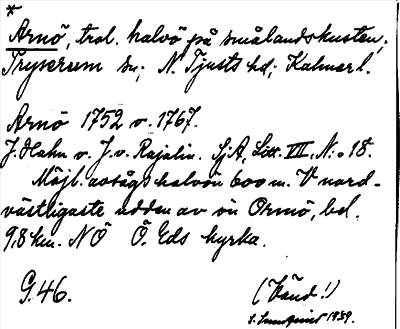 *
Arnö, trol. halvö på smålandskusten,
Tryserum sn; N. Tjusts hd; Kalmar l.
Arnö 1752 o. 1767.
J. Hahn o. J. v. Rajalin. SjA, Litt. VII, N:o 18.
Möjl. avsågs halvön 600 m. V nord-
västligaste udden av ön Ormö, bel.
9,8 km. NÖ Ö. Eds kyrka.
G. 46.
(Vänd!)
S. Lundqvist 1939.